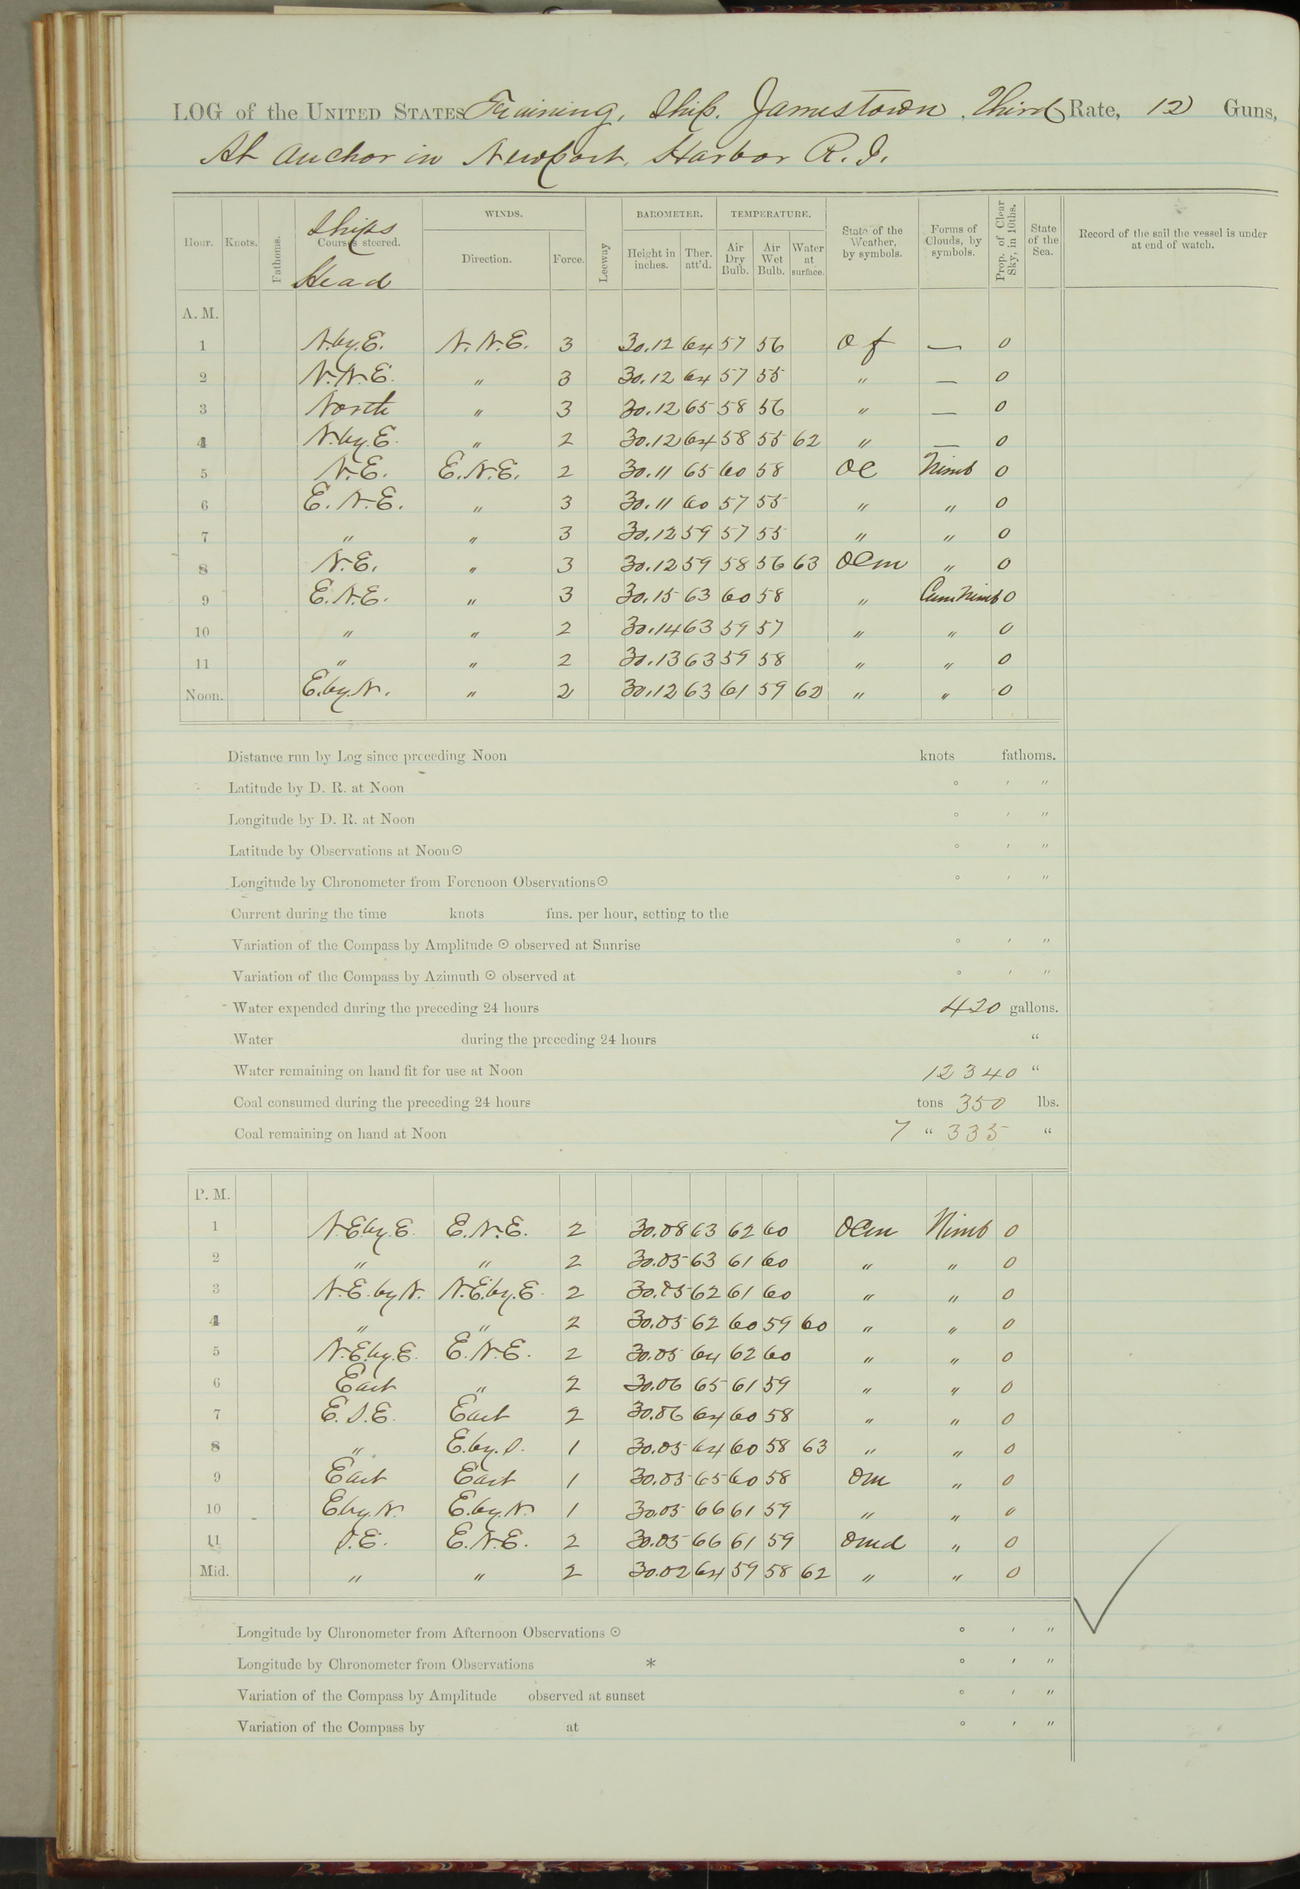 LOG of the UNITED STATES Training Ship Jamestown, Third Rate, 12 Guns,
At anchor in Newport Harbor R.I.
Hour. Knots. Fathoms. Courses steered. Ships Head WINDS. Direction. Force. Leeway BAROMETER. Height in inches. Ther. att'd. TEMPERATURE. Air Dry Bulb. Air Wet Bulb. Water at surface. State of the Weather, by symbols. Forms of Clouds, by symbols. Prop. of Clear Sky, in 10ths. State of the Sea. Record of the sail the vessel is under at end of watch.
A. M.
1 N.by.E. N.N.E. 3 30.12 64 57 56 o f — 0
2 N.N.E. " 3 30.12 64 57 55 " — 0
3 North " 3 30.12 65 58 56 " — 0
4 N.by.E. " 2 30.12 64 58 55 62 " — 0
5 N.E. E.N.E. 2 30.11 65 60 58 oc Nimb 0
6 E.N.E. " 3 30.11 60 57 55 " " 0
7 " " 3 30.12 59 57 55 " " 0
8 N.E. " 3 30.12 59 58 56 63 ocm " 0
9 E.N.E. " 3 30.15 63 60 58 " Cum Nimb 0
10 " " 2 30.14 63 59 57 " " 0
11 " " 2 30.13 63 59 58 " " 0
Noon. E.by.N. " 2 30.12 63 61 59 62 " " 0
Distance run by Log since preceding Noon knots fathoms.
Latitude by D. R. at Noon ° ' "
Longitude by D. R. at Noon ° ' "
Latitude by Observations at Noon ☉ ° ' "
Longitude by Chronometer from Forenoon Observations ☉ ° ' "
Current during the time knots fms. per hour, setting to the
Variation of the Compass by Amplitude ☉ observed at Sunrise ° ' "
Variation of the Compass by Azimuth ☉ observed at ° ' "
Water expended during the preceding 24 hours 420 gallons.
Water during the preceding 24 hours "
Water remaining on hand fit for use at Noon 12340 "
Coal consumed during the preceding 24 hours tons 350 lbs.
Coal remaining on hand at Noon 7 " 335 "
P. M.
1 N.E.by.E. E.N.E. 2 30.08 63 62 60 ocm Nimb 0
2 " " 2 30.05 63 61 60 " " 0
3 N.E. by N. N.E.by.E. 2 30.05 62 61 60 " " 0
4 " " 2 30.05 62 60 59 60 " " 0
5 N.E.by.E. E.N.E. 2 30.05 64 62 60 " " 0
6 East " 2 30.06 65 61 59 " " 0
7 E.S.E. East 2 30.06 64 60 58 " " 0
8 " E.by.S. 1 30.05 64 60 58 63 " " 0
9 East East 1 30.05 65 60 58 om " 0
10 E.by.N. E.by.N. 1 30.05 66 61 59 " " 0
11 S.E. E.N.E. 2 30.05 66 61 59 omd " 0
Mid. " " 2 30.02 64 59 58 62 " " 0
Longitude by Chronometer from Afternoon Observations ☉ ° ' "
Longitude by Chronometer from Observations * ° ' "
Variation of the Compass by Amplitude observed at sunset ° ' "
Variation of the Compass by at ° ' "